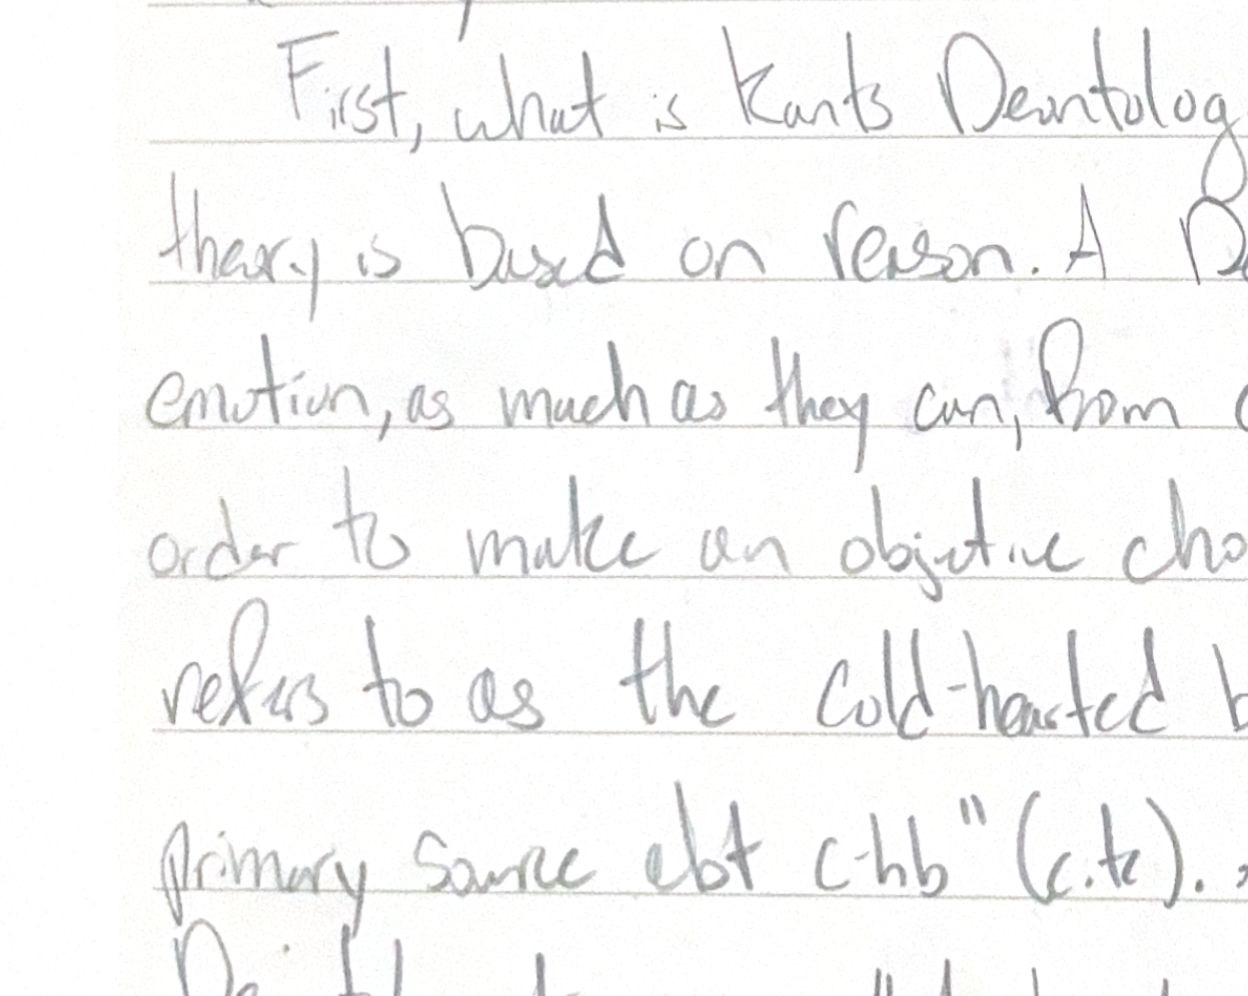 First, what is Kants Deontolog
theory is based on reason. A
emotion, as much as they can, from
order to make an objective cho
refers to as the cold-hearted b
primary source abt c-hb" (c.k).